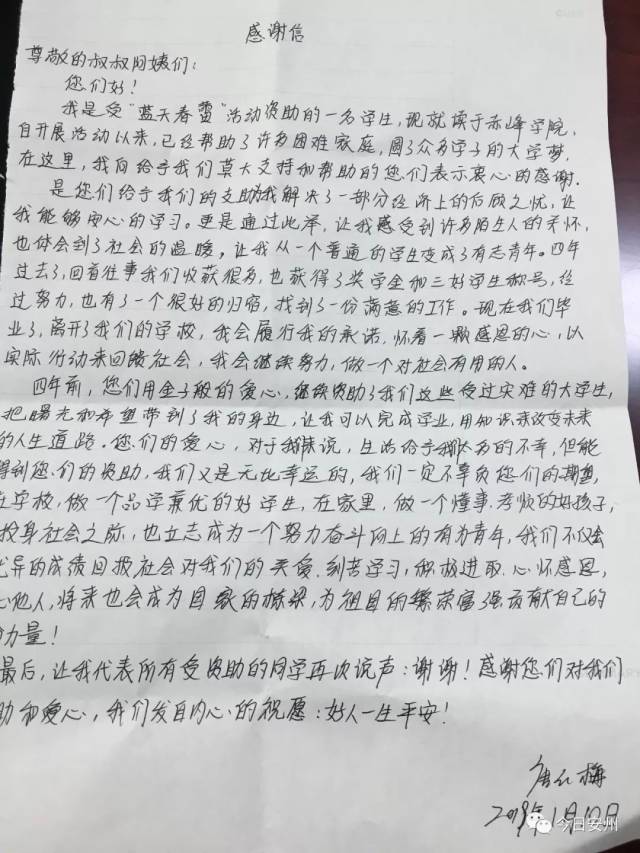 感谢信
尊敬的叔叔阿姨们：
您们好！
我是受“蓝天春蕾”活动资助的一名学生，现就读于赤峰学院，
自开展活动以来，已经帮助了许多困难家庭，圆了众多学子的大学梦，
在这里，我向给予我们莫大支持和帮助的您们表示衷心的感谢．
是您们给予我们的支助为我解决了一部分经济上的后顾之忧，让
我能够安心的学习。更是通过此举，让我感受到许多陌生人的关怀，
也体会到了社会的温暖。让我从一个普通的学生变成了有志青年。四年
过去了，回看往事我们收获很多，也获得了奖学金和三好学生称号，经
过努力，也有了一个很好的归宿，找到了一份满意的工作。现在我们毕
业了，离开了我们的学校，我会履行我的承诺，怀着一颗感恩的心，以
实际行动来回馈社会，我会继续努力，做一个对社会有用的人。
四年前，您们用金子般的爱心，继续资助了我们这些受过灾难的大学生，
把曙光和希望带到了我的身边，让我可以完成学业，用知识来改变未来
的人生道路。您们的爱心，对于我来说，生活给予我太多的不幸，但能
得到您们的资助，我们又是无比幸运的，我们一定不辜负您们的期望，
在学校，做一个品学兼优的好学生，在家里，做一个懂事、孝顺的好孩子，
投身社会之际，也立志成为一个努力奋斗向上的有为青年，我们不仅会
优异的成绩回报社会对我们的关爱、刻苦学习，积极进取、心怀感恩，
他人，将来也会成为国家的栋梁，为祖国的繁荣富强贡献自己的
力量！
最后，让我代表所有受资助的同学再次说声：谢谢！感谢您们对我们
助和爱心，我们发自内心的祝愿：好人一生平安！
梅
2019年1月10日
今日安州